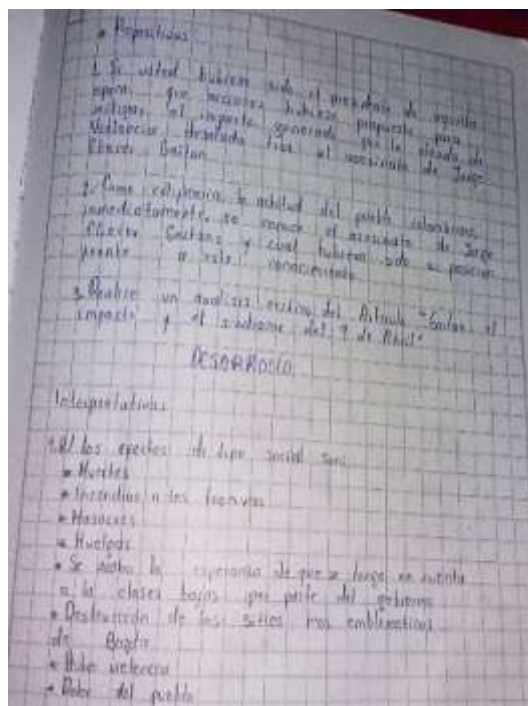 * Propositivas
1. Si usted hubiera sido el presidente de aquella
epoca, que acciones hubiese propuesto para
mitigar el impacto generado por la oleada de
Violencia desatada tras el asesinato de Jorge
Eliecer Gaitan
2. Como la actitud del pueblo colombiano
inmediatamente, se conoce el asesinato de Jorge
Eliecer Gaitan, y cual hubiera sido su posicion
frente a este
3. Realice un analisis critico del Articulo "Gaitan: el
impacto y el sindrome del 9 de Abril"
DESARROLLO
Interpretativas
los efectos de tipo social son:
* Muertes
* Incendios a los tranvias
* Masacres
* Huelgas
* Se la esperanza de que se tenga en cuenta
a la clases bajas por parte del gobierno
* Destrucción de los sitios mas emblematicos
de Bogota
* Hubo violencia
* del pueblo